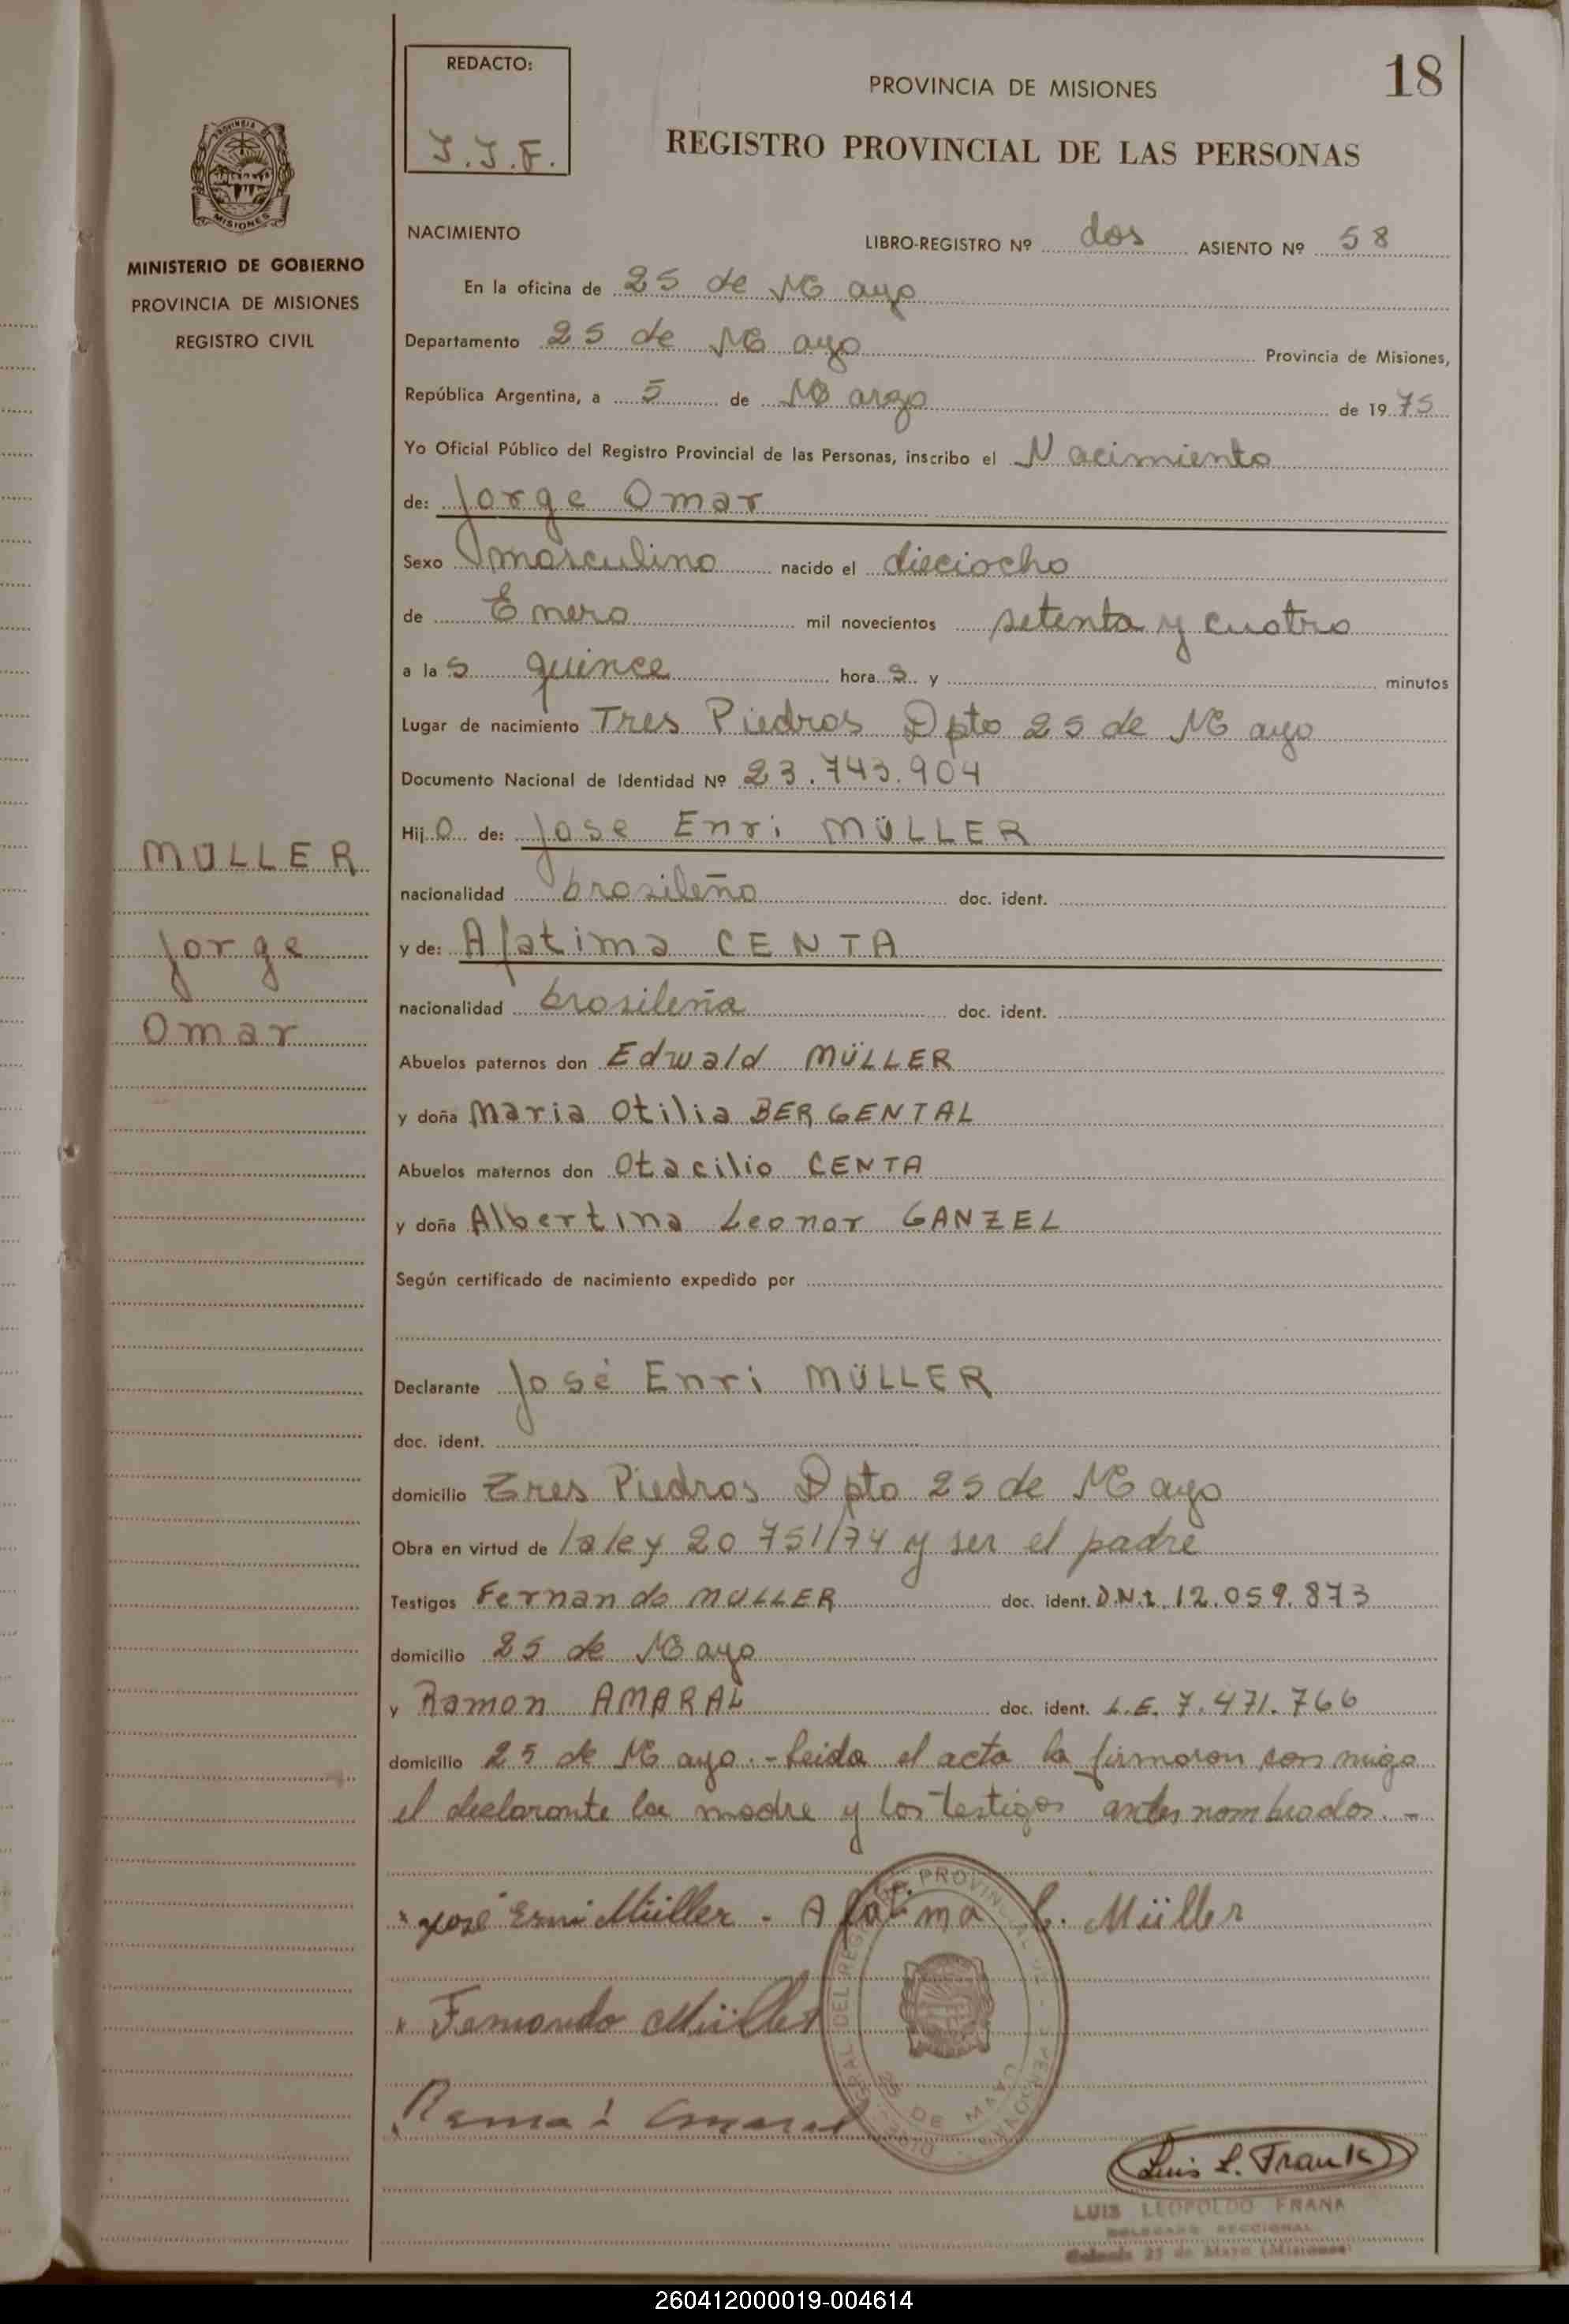 REDACTO:
J.J.F.
18
PROVINCIA DE MISIONES
REGISTRO PROVINCIAL DE LAS PERSONAS
PROVINCIA DE
MISIONES
MINISTERIO DE GOBIERNO
PROVINCIA DE MISIONES
REGISTRO CIVIL
NACIMIENTO
LIBRO-REGISTRO Nº dos ASIENTO Nº 58
En la oficina de 25 de Mayo
Departamento 25 de Mayo Provincia de Misiones,
República Argentina, a 5 de Marzo de 1975
Yo Oficial Público del Registro Provincial de las Personas, inscribo el Nacimiento
de: Jorge Omar
Sexo masculino nacido el dieciocho
de Enero mil novecientos setenta y cuatro
a las quince horas y minutos
Lugar de nacimiento Tres Piedras Dpto 25 de Mayo
Documento Nacional de Identidad Nº 23.743.904
Hijo de: Jose Enri MÜLLER
nacionalidad brasileño doc. ident.
y de: Afatima CENTA
nacionalidad brasileña doc. ident.
Abuelos paternos don Edwald MÜLLER
y doña Maria Otilia BERGENTAL
Abuelos maternos don Otacilio CENTA
y doña Albertina Leonor GANZEL
Según certificado de nacimiento expedido por
Declarante José Enri MÜLLER
doc. ident.
domicilio Tres Piedras Dpto 25 de Mayo
Obra en virtud de la ley 20 751/74 y ser el padre
Testigos Fernando MULLER doc. ident. D.N.I. 12.059.873
domicilio 25 de Mayo
y Ramon AMARAL doc. ident. L.E. 7.471.766
domicilio 25 de Mayo.- Leida el acta la firmaron conmigo
el declarante la madre y los testigos antes nombrados.-
MULLER
Jorge
Omar
x José Erni Müller - Afatima C. Müller
x Fernando Müller
Amaral
25 DE MAYO
Luis L. Frank
LUIS LEOPOLDO FRANK
DELEGADO SECCIONAL
Colonia 25 de Mayo (Misiones)
260412000019-004614